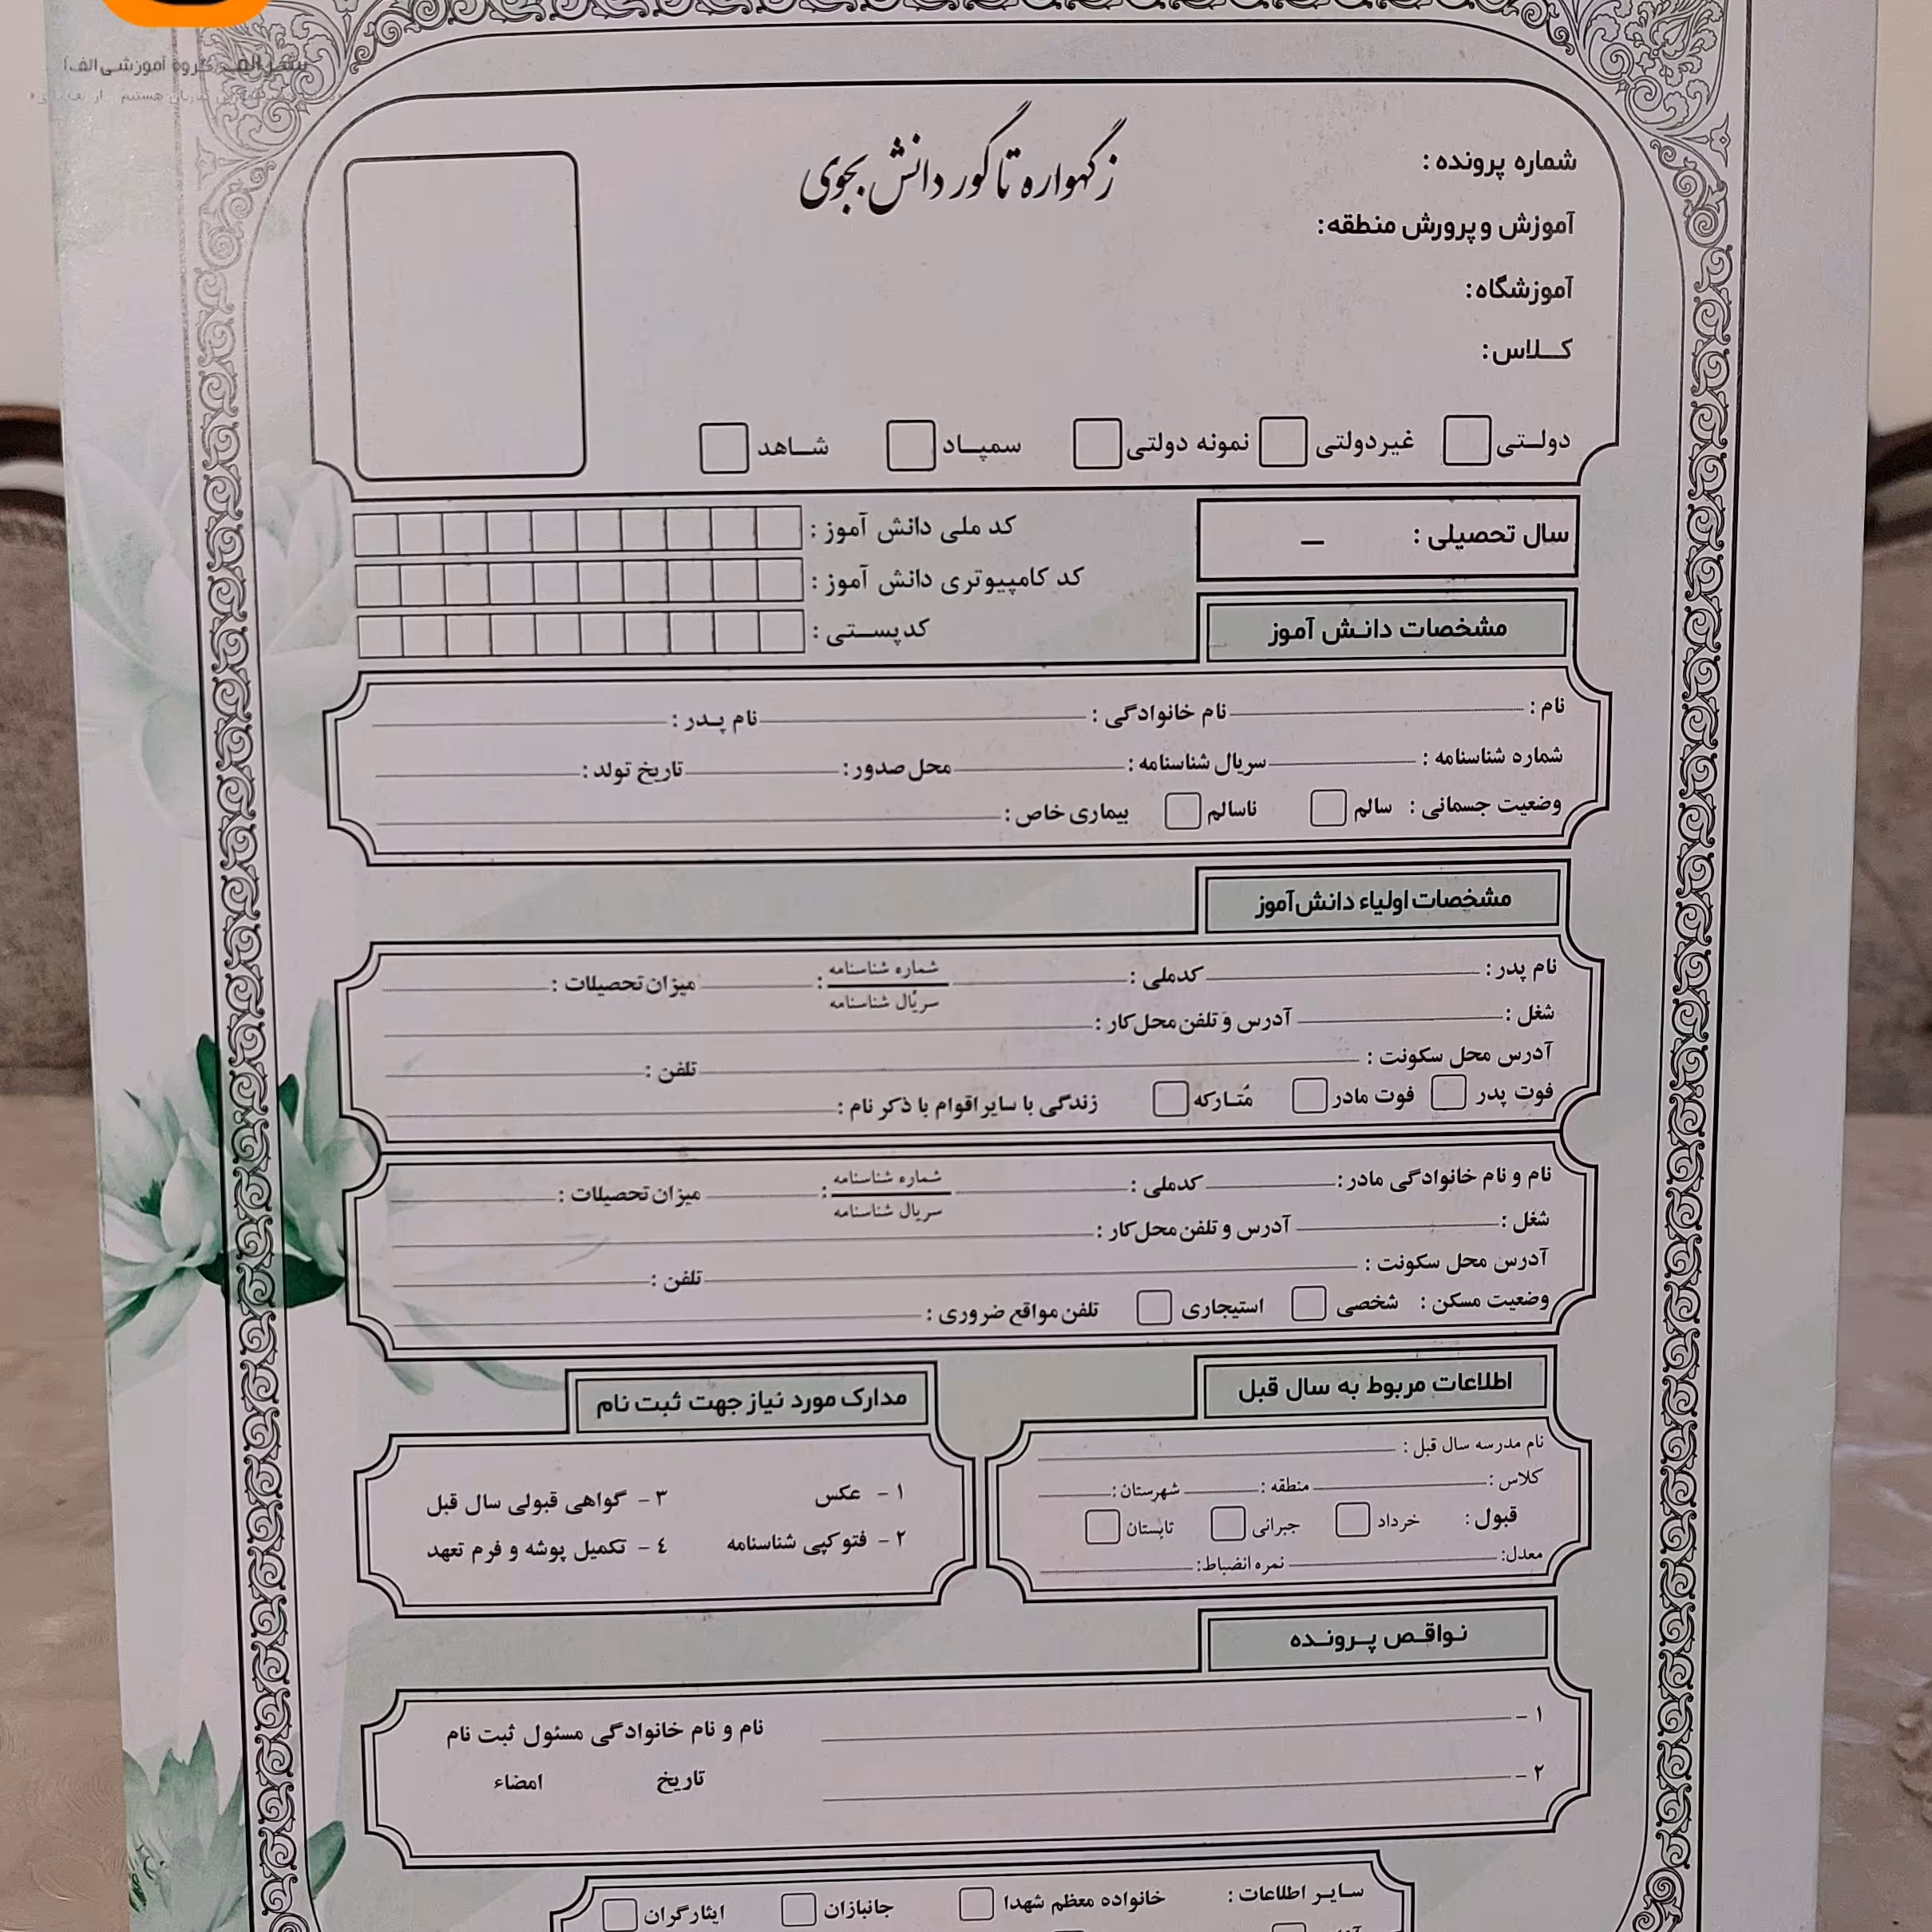 گروه آموزشی الف
ز گهواره تا گور دانش بجوی
شماره پرونده :
آموزش و پرورش منطقه:
آموزشگاه:
کــلاس:
دولــتی غیردولتی نمونه دولتی سمپــاد شــاهد
سال تحصیلی : –
کد ملی دانش آموز :
کد کامپیوتری دانش آموز :
کدپســتی :
مشخصات دانـش آموز
نام : نام خانوادگی : نام پـدر :
شماره شناسنامه : سریال شناسنامه : محل صدور : تاریخ تولد :
وضعیت جسمانی : سالم ناسالم بیماری خاص :
مشخصات اولیاء دانش‌آموز
نام پدر : کدملی : شماره شناسنامه : میزان تحصیلات :
سریال شناسنامه
شغل : آدرس و تلفن محل‌کار :
آدرس محل سکونت : تلفن :
فوت پدر فوت مادر مُتـارکه زندگی با سایر اقوام با ذکر نام :
نام و نام خانوادگی مادر : کدملی : شماره شناسنامه : میزان تحصیلات :
سریال شناسنامه
شغل : آدرس و تلفن محل‌کار :
آدرس محل سکونت : تلفن :
وضعیت مسکن : شخصی استیجاری تلفن مواقع ضروری :
اطلاعات مربوط به سال قبل
نام مدرسه سال قبل :
کلاس : منطقه : شهرستان :
قبول : خرداد جبرانی تابستان
معدل: نمره انضباط:
مدارک مورد نیاز جهت ثبت نام
۱ - عکس ۳ - گواهی قبولی سال قبل
۲ - فتوکپی شناسنامه ٤ - تکمیل پوشه و فرم تعهد
نـواقـص پـرونـده
۱ -
۲ -
نام و نام خانوادگی مسئول ثبت نام
تاریخ امضاء
سـایـر اطلاعات : خانواده معظم شهدا جانبازان ایثارگران